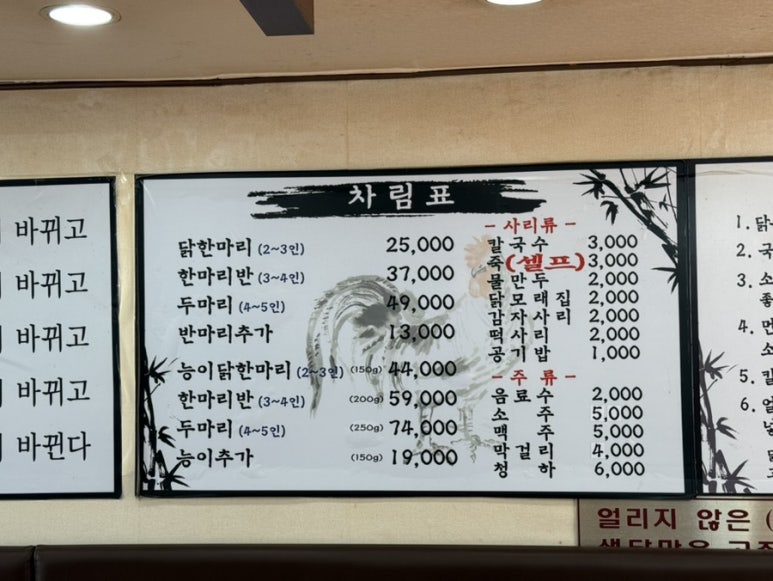 바뀌고
바뀌고
바뀌고
바뀌고
바뀐다
차림표
닭한마리 (2~3인) 25,000
한마리반 (3~4인) 37,000
두마리 (4~5인) 49,000
반마리추가 13,000
능이닭한마리 (2~3인) (150g) 44,000
한마리반 (3~4인) (200g) 59,000
두마리 (4~5인) (250g) 74,000
능이추가 (150g) 19,000
- 사리류 -
칼국수 3,000
죽(셀프) 3,000
물만두 2,000
닭모래집 2,000
감자사리 2,000
떡사리 2,000
공기밥 1,000
- 주 류 -
음료수 2,000
소주 5,000
맥주 5,000
막걸리 4,000
청하 6,000
1. 닭
2. 국
3. 소
좋
4. 먼
소
5. 칼
6.
얼리지 않은